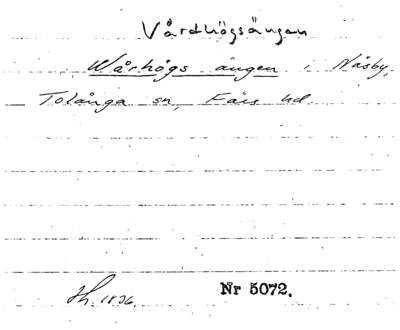 Vårdhögsängen
Wårhögs ängen i Näsby,
Tolånga sn, Färs hd.
Sk. 1836. Nr 5072.